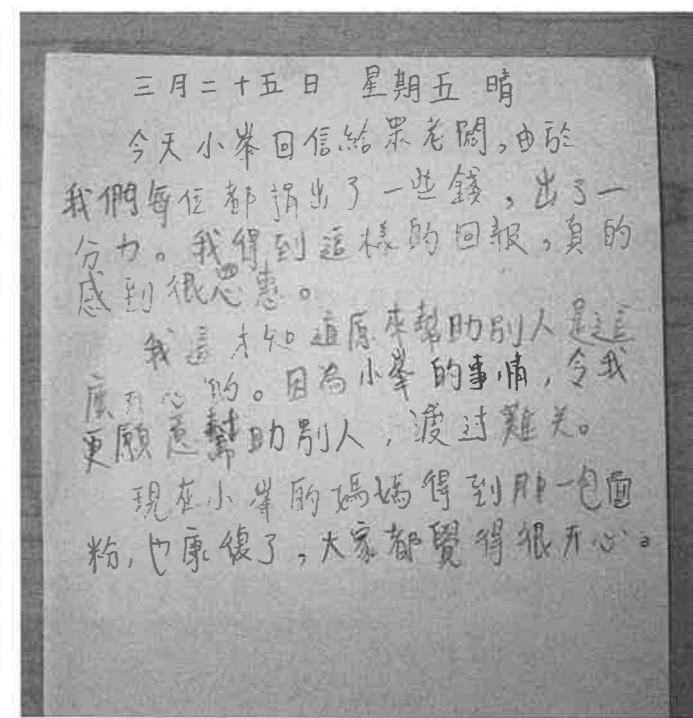 三月二十五日 星期五 晴
今天小峯回信給眾老闆,由於
我們每位都捐出了一些錢,出了一
分力。我得到這樣的回報,真的
感到很恩惠。
我這才知道原來幫助別人是這
麼開心的。因為小峯的事情,令我
更願意幫助別人,渡过難关。
現在小峯的媽媽得到那一包面
粉,也康復了,大家都覺得很开心。